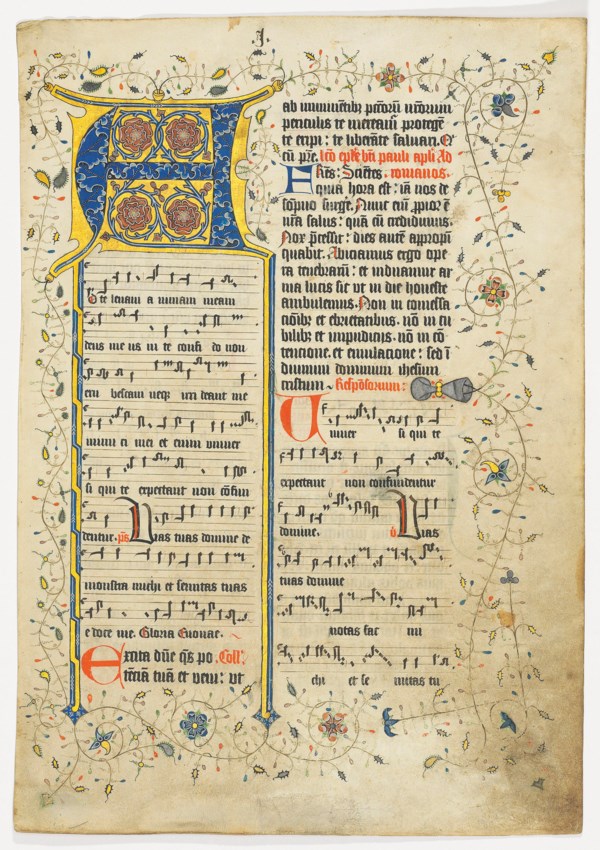 J.
A
d te levavi a nimam meam
deus me us in te confi do non
eru bescam neqꝫ irri deant me
inimi ci mei et enim univer
si qui te expectant non cōfun
dentur. p̄s Vias tuas domine de
monstra michi et semitas tuas
e doce me. Gloria Euouae.
excita dn̄e q̄s po. Coll̄.
tenciā tuā et veni: ut
ab iminentibꝰ pctorū nr̄orum
periculis te mereamur protegēte
te eripi: te liberāte salvari. Q̄
cū p̄re. lcō ep̄le btī pauli apl̄i Ad
Fr̄es: Scientes. romanos.
quia hora est: iā nos de
sōpno surge. Nunc eni ppior ē
nr̄a salus: quā cū credidimus.
Nox p̄cessit: dies autē appropī
quabit. Abiciamus ergo ope
ra tenebrarū: et induamur ar
ma lucis sic ut in die honeste
ambulemus. Non in comessa
cōibꝰ et ebrietatibus. nō in cu
bilibꝰ et impudiciis. nō in cō
tencione. et emulacione: sed ī
duimini dominum ihesum
cristum. Respōsorium:
Univer si qui te
expectant non confundentur
domine. v̄ Vias
tuas domine
notas fac mi
chi et se mitas tu